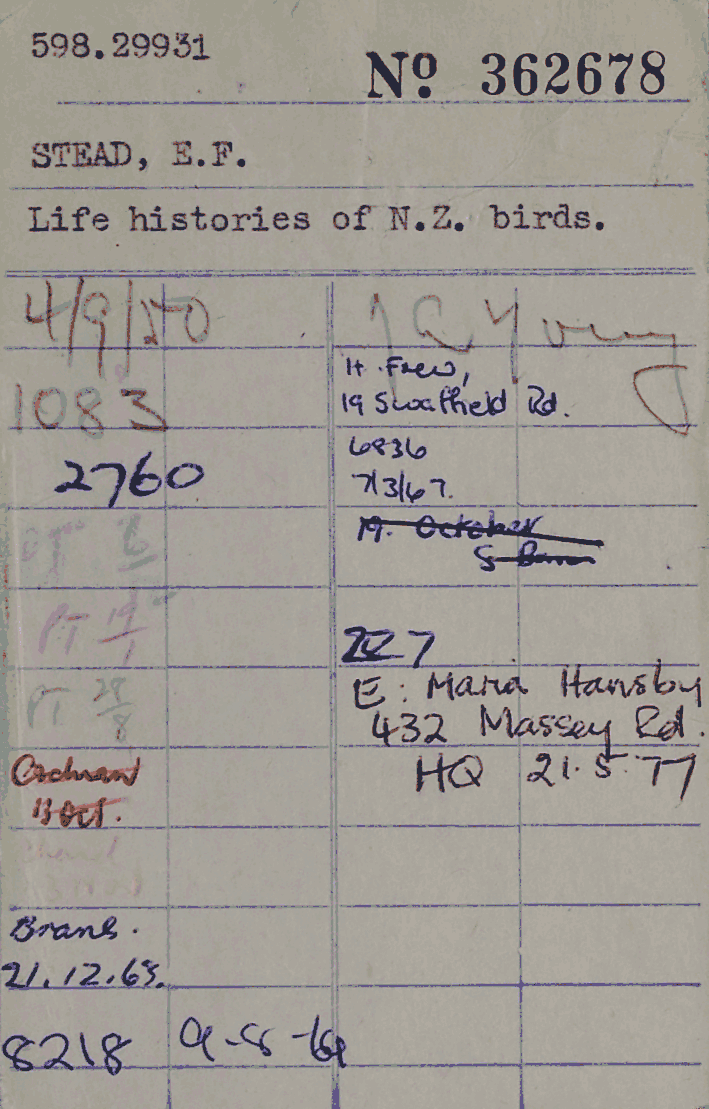 598.29931
Nº 362678
STEAD, E.F.
Life histories of N.Z. birds.
4/9/50
1083
2760
PT 19/1
PT 28/8
11 Oct.
21.12.65.
8218 9-8-69
J Q Young
H. Frew,
19 Swaffield Rd.
6836
7/3/67.
19. October
S
7
E: Maria Hansby
432 Massey Rd.
HQ 21.5.77